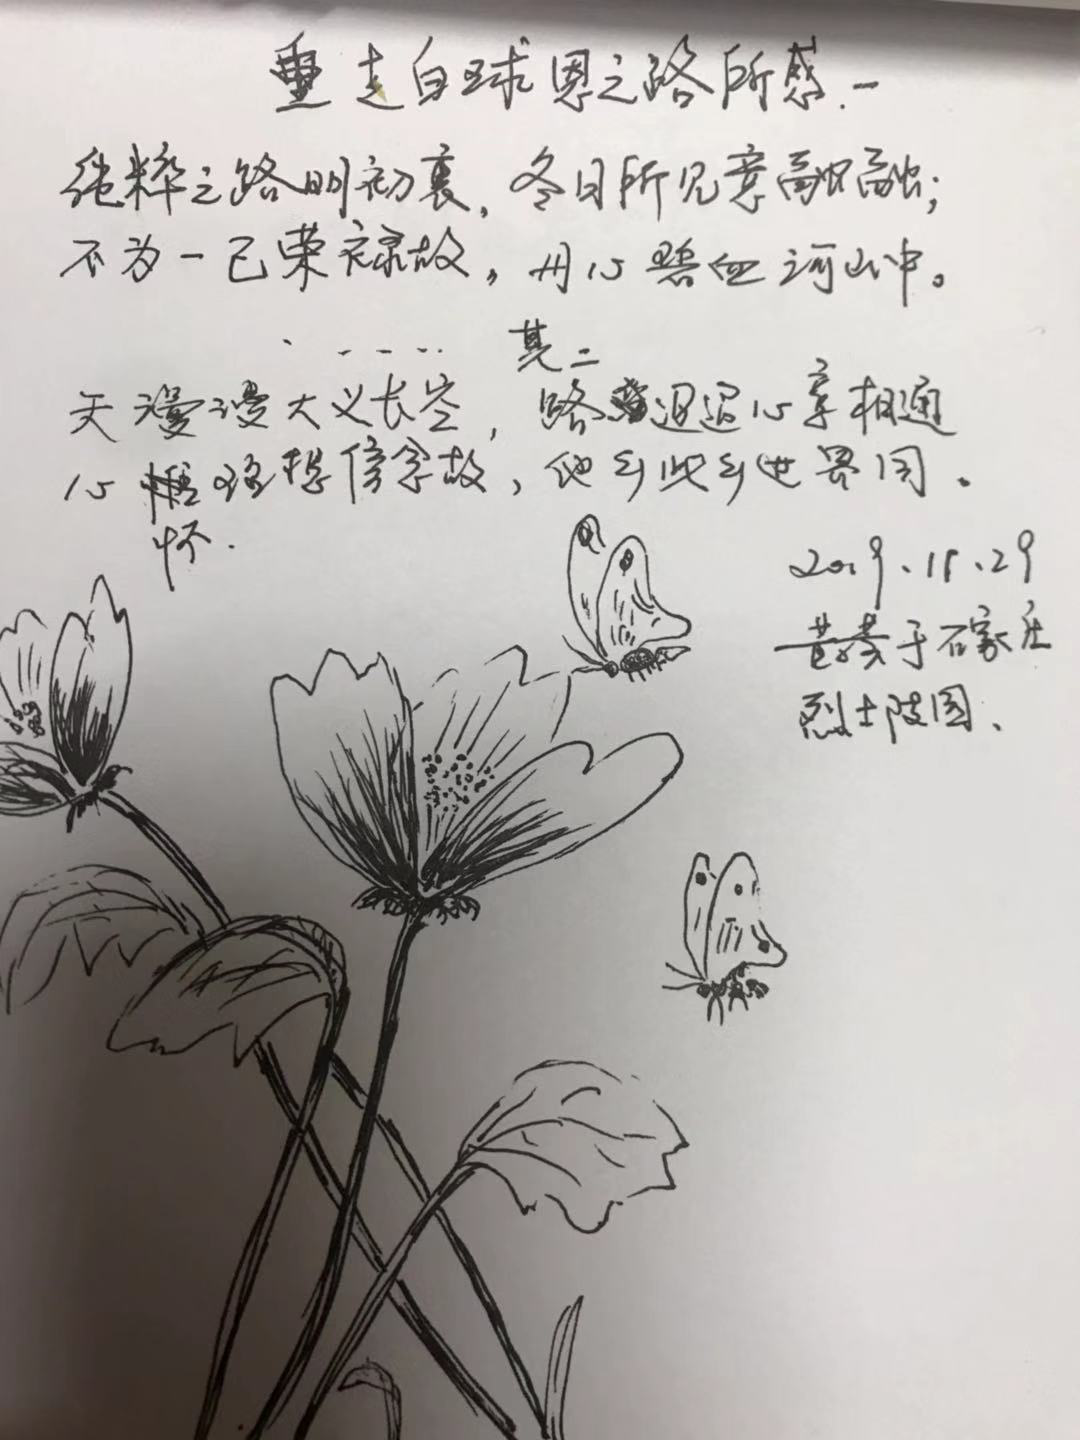 重走白求恩之路所感.一
纯粹之路明初衷,冬日所见意融融;
不为一己荣禄故,丹心碧血河山中。
其二
天漫漫大义长空,路迢迢心意相通
心怀理想信念故,他乡此乡世界同。
2019.11.29
于石家庄
烈士陵园、